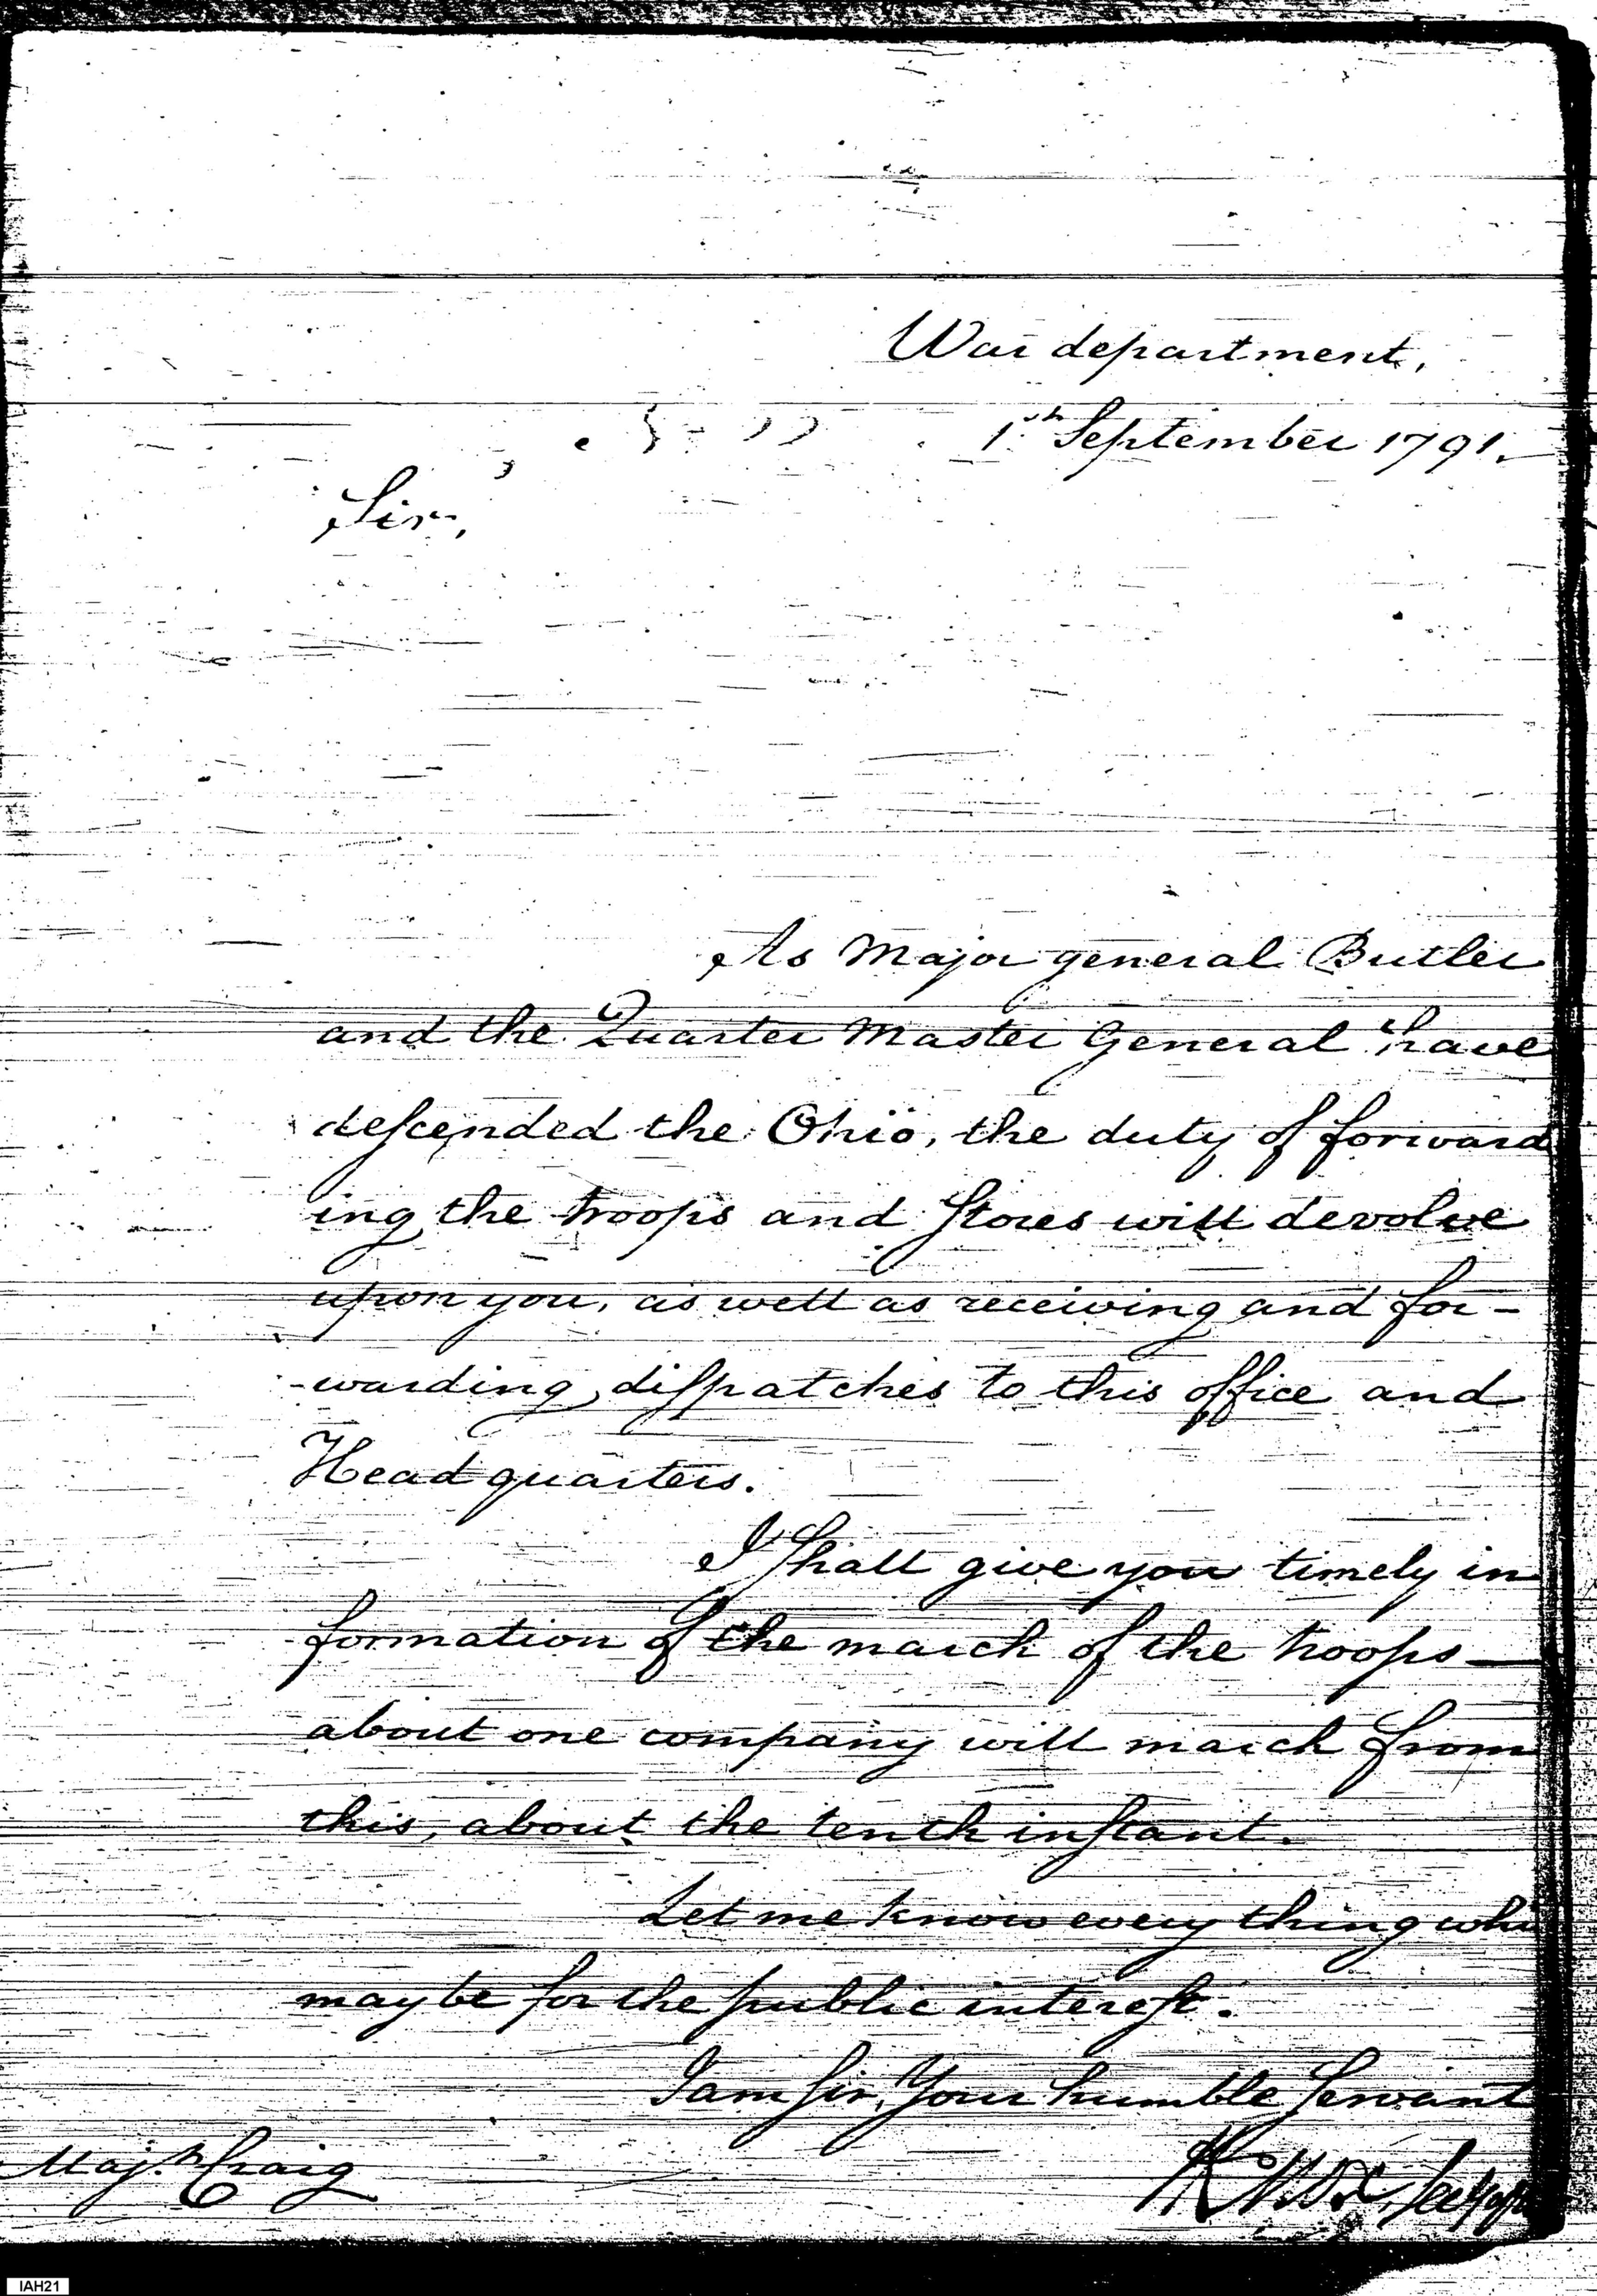 War department,
1st September 1791.
Sir,
As Major general Butler
and the Quarter Master General have
deſcended the Ohio, the duty of forward
ing the troops and Stores will devolve
upon you, as well as receiving and for-
-warding diſpatches to this office and
Head quarters.
I Shall give you timely in
formation of the march of the troops—
about one company will march from
this, about the tenth inſtant.
Let me know every thing whi
may be for the public intereſt.
I am Sir, Your humble Servant
Majr. Craig
HKnox, Secy of
IAH21